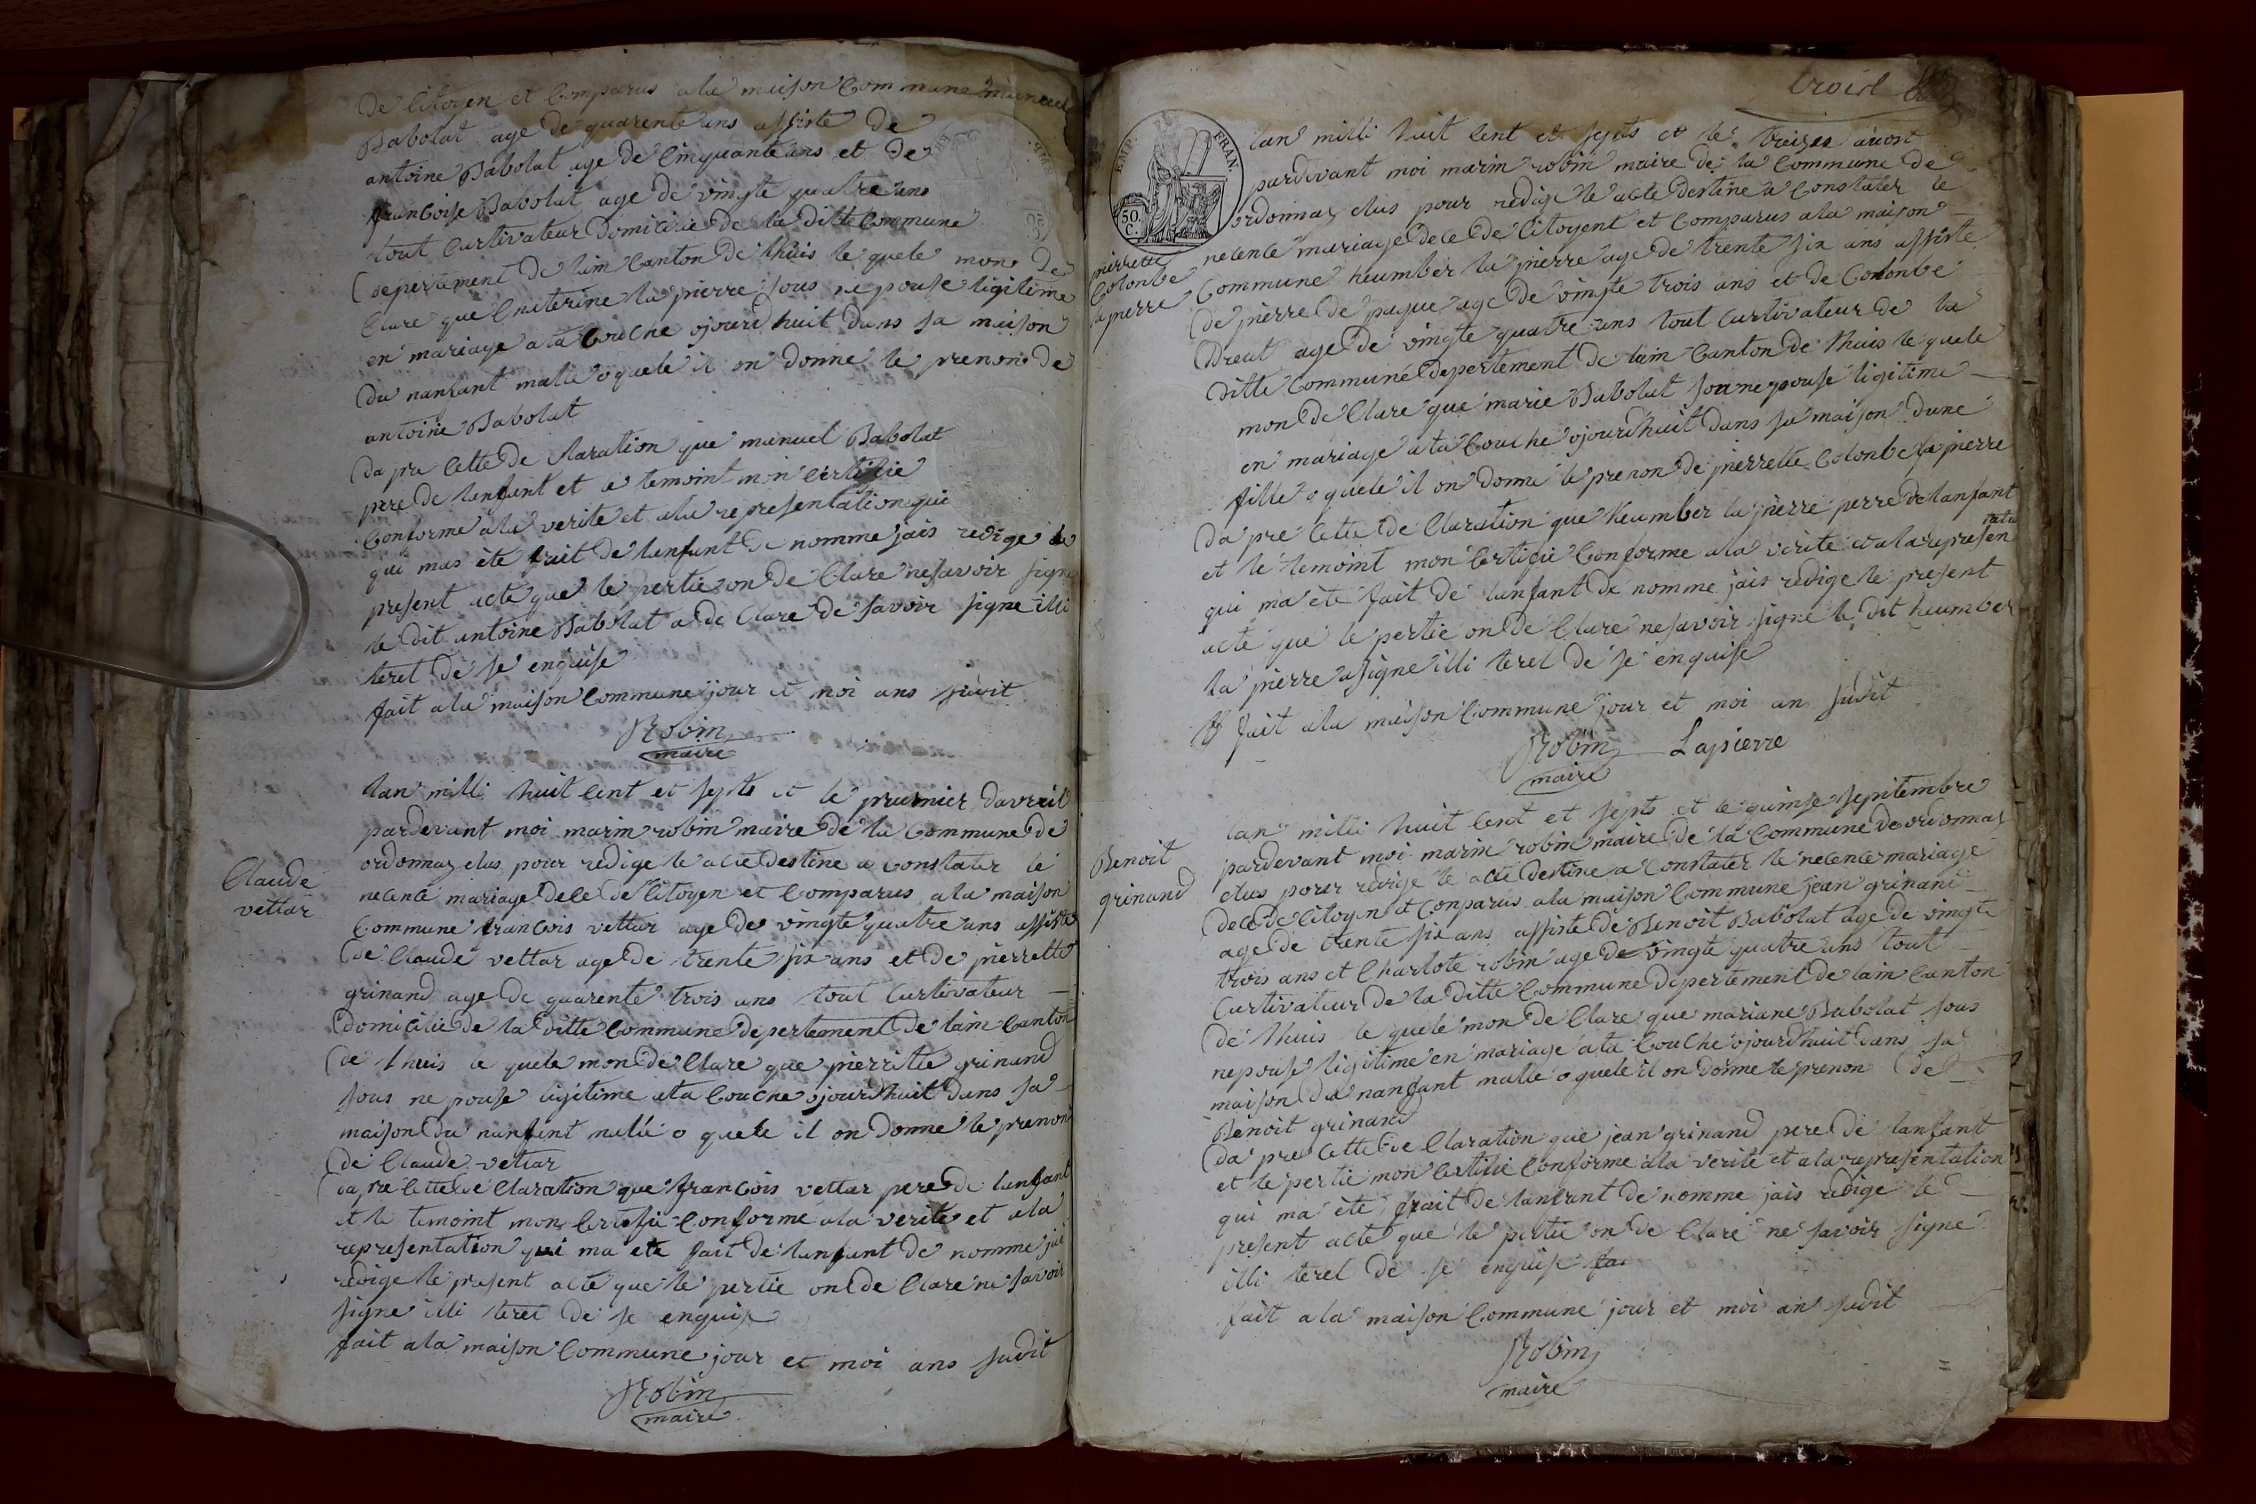 de Citoyen et Comparus ala maison Commune manuel
Babolat age de quarente ans assiste de
antoine Babolat age de Cinquante ans et de
francoise Babolat age de vingte quatre ans
tout Curtivateur domicilie de la ditte Commune
depertement de lain Canton de lhuis le quele mon de
Clare que Caterine la pierre sous ne pouse ligitime
en mariage ata Couche ojourdhuit dans sa maison
du nanfant malle o quele il on donne le prenon de
antoine Babolat
da pre Cette de Claration que manuel Babolat
pere de lanfant et e temoint mon Certifie
Conforme ala verite et ala representation qui
qui mas ete fait de lanfant de nomme jais redige le
present acte que le pertie on de Clare ne savoir signe
le dit antoine Babolat a de Clare de savoir signe illi
teret de se enquise
fait ala maison Commune jour et moi ans sudit
Robin
maire
Claude
vettar
lan milli huit Cent et septs et le preumier davreil
pardevant moi marin robin maire de la Commune de
ordonnaz elus pour redige le acte destine a Constater le
necence mariage de ce de Citoyen et Comparus ala maison
Commune francois vettar age de vingte quatre ans assiste
de Claude vettar age de trente six ans et de pierrette
grinand age de quarente trois ans tout Curtivateur
domicilie de la ditte Commune depertement de lain Canton
de lhuis le quele mon de Clare que pierrette grinand
sous ne pouse ligitime ata Couche ojourdhuit dans sa
maison du nanfant malle o quele il on donne le prenon
de Claude vettar
da pre Cette de Claration que francois vettar pere de lanfant
et le temoint mon Certifie Conforme ala verite et ala
representation qui ma ete fait de lanfant de nomme jai
redige le present acte que le pertie on de Clare ne savoir
signe illi teret de se enquise
fait ala maison Commune jour et moi ans sudit
Robin
maire
troist
EMP. FRAN.
50.
C.
pierrette
Colonbe
la pierre
lan milli huit Cent et septs et le treizes avost
pardevant moi marin robin maire de la Commune de
ordonnaz elus pour redige le acte destine a Constater le
necence mariage de ce de Citoyent et Comparus ala maison
Commune heumber la pierre age de trente six ans assiste
de pierre de paque age de vingte trois ans et de Colonbe
Dreut age de vingte quatre ans tout Curtivateur de la
ditte Commune depertement de lain Canton de lhuis le quele
mon de Clare que marie Babolat son ne pouse ligitime
en mariage ata Couche ojourdhuit dans sa maison dune
fille o quele il on donne le prenon de pierrette Colonbe la pierre
da pre Cette de Claration que heumber la pierre perre de lanfant
et le temoint mon Certifie Conforme ala verite et ala represen
tation
qui ma ete fait de lanfant de nomme jais redige le present
acte que le pertie on de Clare ne savoir signe le dit heumber
la pierre a signe illi teret de se enquise
fait ala maison Commune jour et moi an sudit
Robin Lapierre
maire
Benoit
grinand
lan milli huit Cent et septs et le quinse sepitembre
pardevant moi marin robin maire de la Commune de ordonnaz
elus pour redige le acte destine a Constater le necence mariage
de ce de Citoyen et Conparus ala maison Commune jean grinand
age de trente six ans assiste de Benoit Babolat age de vingte
trois ans et Charlote robin age de vingte quatre ans tout
Curtivateur de la ditte Commune depertement de lain Canton
de lhuis le quele mon de Clare que mariane Babolat sous
ne pouse ligitime en mariage ata Couche ojourdhuit dans sa
maison du nanfant malle o quele il on donne le prenon de
Benoit grinand
da pre Cette de Claration que jean grinand pere de lanfant
et le pertie mon Certifie Conforme ala verite et ala representation
qui ma ete frait de lanfant de nomme jais redige le
present acte que le pertie on de Clare ne savoir signe
illi teret de se enquise
fait ala maison Commune jour et moi an sudit
Robin
maire